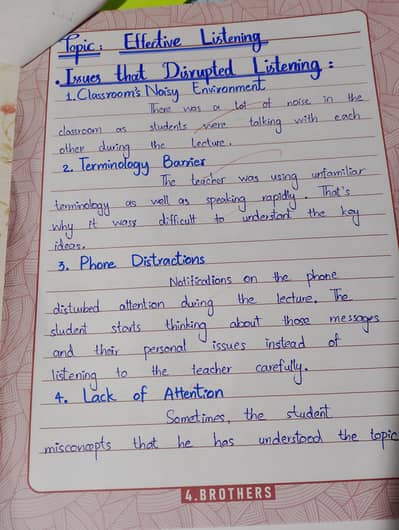 Topic: Effective Listening
• Issues that Disrupted Listening :
1. Classroom's Noisy Environment
There was a lot of noise in the
classroom as students were talking with each
other during the lecture.
2. Terminology Barrier
The teacher was using unfamiliar
terminology as well as speaking rapidly. That's
why it was difficult to understant the key
ideas.
3. Phone Distractions
Notifications on the phone
distubed attention during the lecture. The
student starts thinking about those messages
and their personal issues instead of
listening to the teacher carefully.
4. Lack of Attention
Sometimes, the student
misconcepts that he has understood the topic
4.BROTHERS